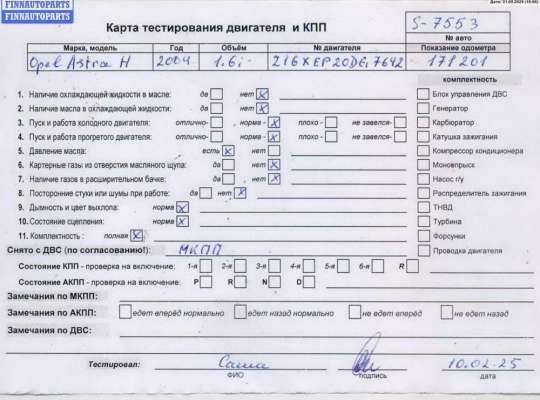 FINNAUTOPARTS
FINNAUTOPARTS
Карта тестирования двигателя и КПП
S-7553
№ авто
Марка, модель Год Объём № двигателя Показание одометра
Opel Astra H 2004 1.6i Z16XEP20DG7642 171201
комплектность
1. Наличие охлаждающей жидкости в масле: да нет x Блок управления ДВС
2. Наличие масла в охлаждающей жидкости: да нет x Генератор
3. Пуск и работа холодного двигателя: отлично- норма - x плохо - не завелся- Карбюратор
4. Пуск и работа прогретого двигателя: отлично- норма - x плохо - не завелся- Катушка зажигания
5. Давление масла: есть x нет Компрессор кондиционера
6. Картерные газы из отверстия масляного щупа: да нет x Моновпрыск
7. Наличие газов в расширительном бачке: да нет x Насос г/у
8. Посторонние стуки или шумы при работе: да нет x Распределитель зажигания
9. Дымность и цвет выхлопа: норма x ТНВД
10. Состояние сцепления: норма x Турбина
11. Комплектность : полная x Форсунки
Снято с ДВС (по согласованию!): МКПП Проводка двигателя
Состояние КПП - проверка на включение: 1-я 2-я 3-я 4-я 5-я 6-я R
Состояние АКПП - проверка на включение: P R N D
Замечания по МКПП:
Замечания по АКПП: едет вперёд нормально едет назад нормально не едет вперёд не едет назад
Замечания по ДВС:
Тестировал: Саша 10.02.25
ФИО подпись дата